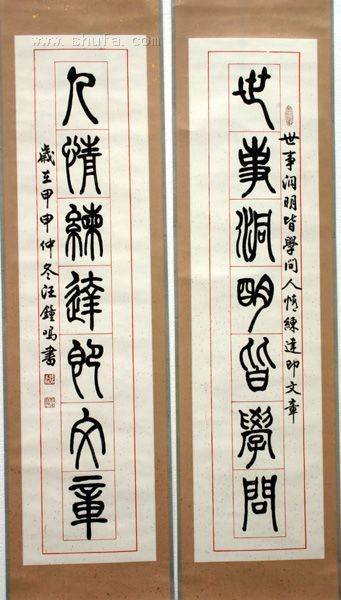 世事洞明皆學問
世事洞明皆學問人情練達即文章
人情練達即文章
歲在甲申仲冬汪鐘鳴書
www.shufa.com